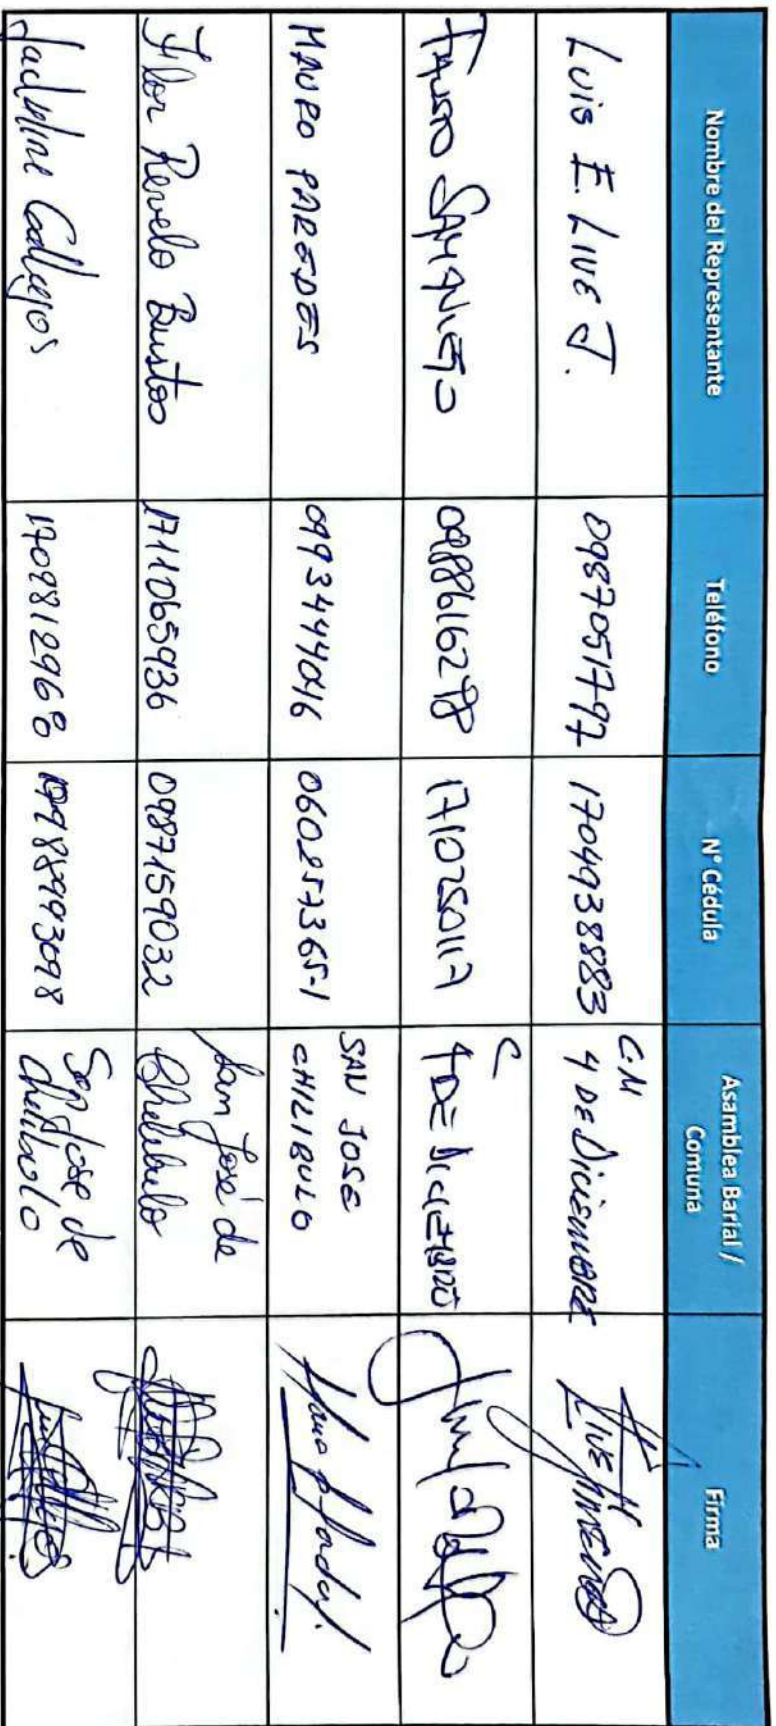 Nombre del Representante
Teléfono
N° Cédula
Asamblea Barial /
Comuna
Firma
Luis E. LIVE J.
0987051797
1704938883
C.M
4 DE DiciEMBRE
FAUSTO SAMANIEGO
0988616298
1710250117
C
4 DE DICIEMBRE
MAURO PAREDES
0993444046
060257365-1
SAN JOSE
CHILIBULO
Flor Revelo Bustos
1711065936
0987159032
San José de
Chilibulo
Jackeline Gallegos
San Jose de
chilibulo